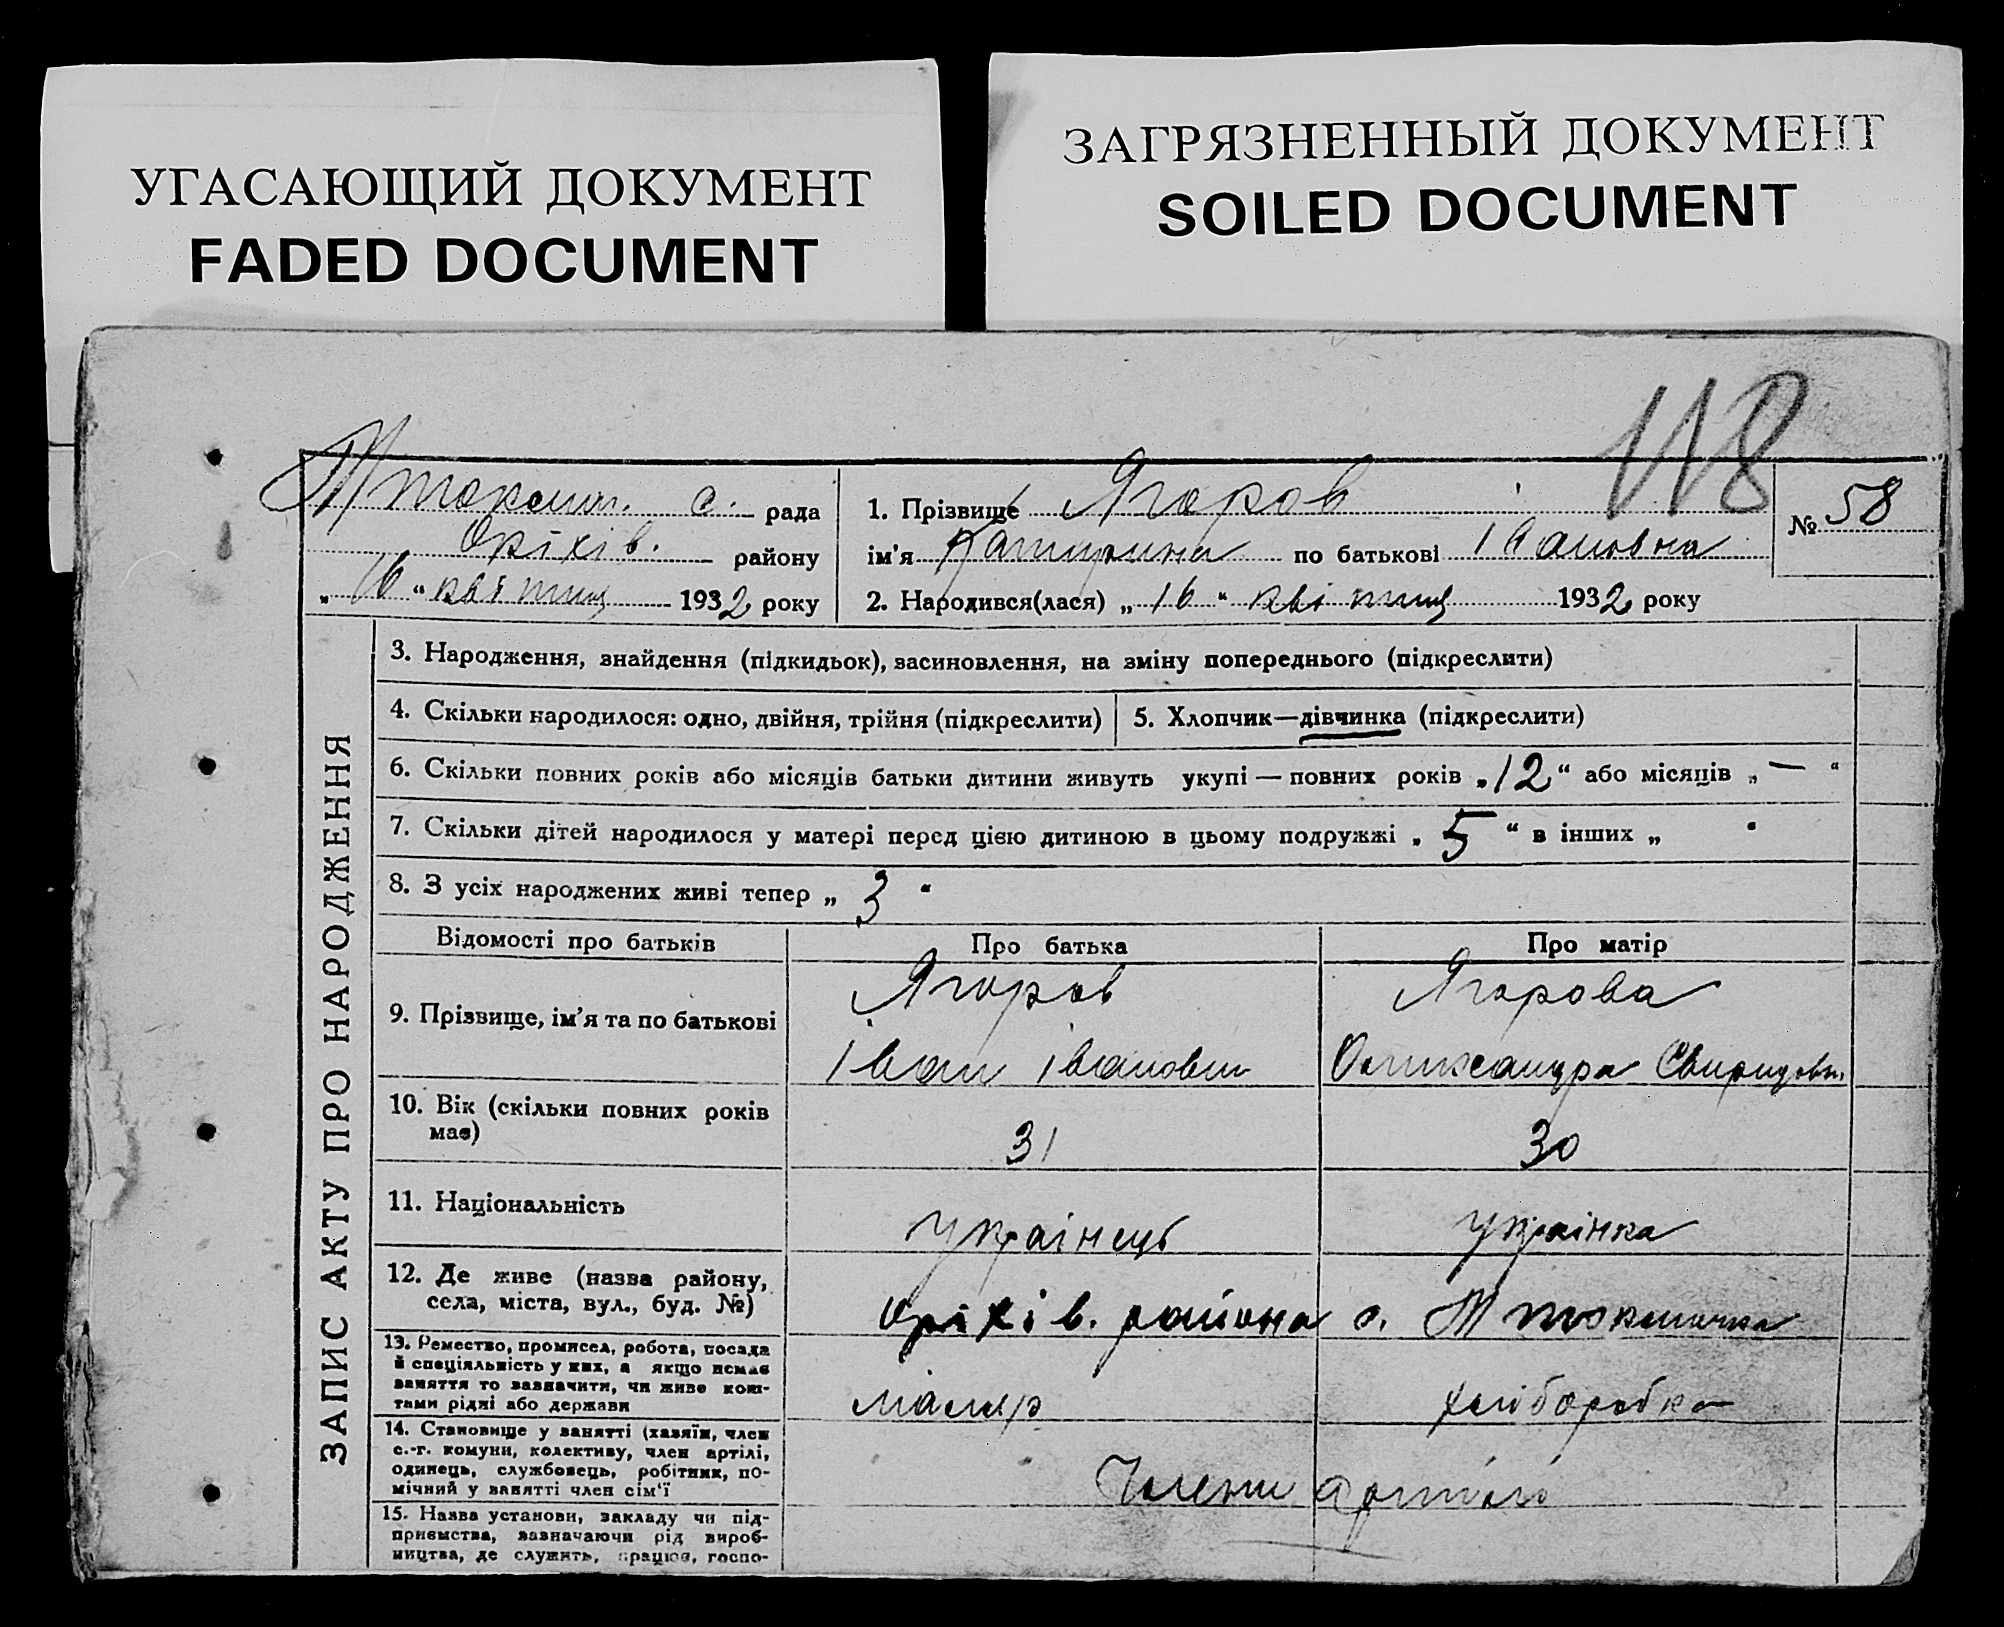 УГАСАЮЩИЙ ДОКУМЕНТ
FADED DOCUMENT
ЗАГРЯЗНЕННЫЙ ДОКУМЕНТ
SOILED DOCUMENT
118
с. рада
Оріхів. району
„ 16 “ квітня 1932 року
1. Прізвище Ягоров
ім'я Катирина по батькові Івановна
2. Народився(лася) „ 16 “ квітня 1932 року
№ 58
ЗАПИС АКТУ ПРО НАРОДЖЕННЯ
3. Народження, знайдення (підкидьок), засиновлення, на зміну попереднього (підкреслити)
4. Скільки народилося: одно, двійня, трійня (підкреслити)
5. Хлопчик—дівчинка (підкреслити)
6. Скільки повних років або місяців батьки дитини живуть укупі — повних років „ 12 “ або місяців „ — “
7. Скільки дітей народилося у матері перед цією дитиною в цьому подружжі „ 5 “ в інших „ “
8. З усіх народжених живі тепер „ 3 “
Відомості про батьків
Про батька
Про матір
9. Прізвище, ім'я та по батькові
Ягоров
Іван Іванович
Ягорова
Олександра Свиридовн.
10. Вік (скільки повних років
має)
31
30
11. Національність
Українець
Українка
12. Де живе (назва району,
села, міста, вул., буд. №)
Оріхів. района с.
13. Ремество, промисел, робота, посада
й спеціяльність у них, а якщо немає
заняття то зазначити, чи живе кош-
тами рідні або держави
маляр
хліборобка
14. Становище у занятті (хазяїн, член
с.-г. комуни, колективу, член артілі,
одинець, службовець, робітник, по-
мічний у занятті член сім'ї
Члени артілі
15. Назва установи, закладу чи під-
приємства, зазначаючи рід вироб-
ництва, де служить, працює, госпо-